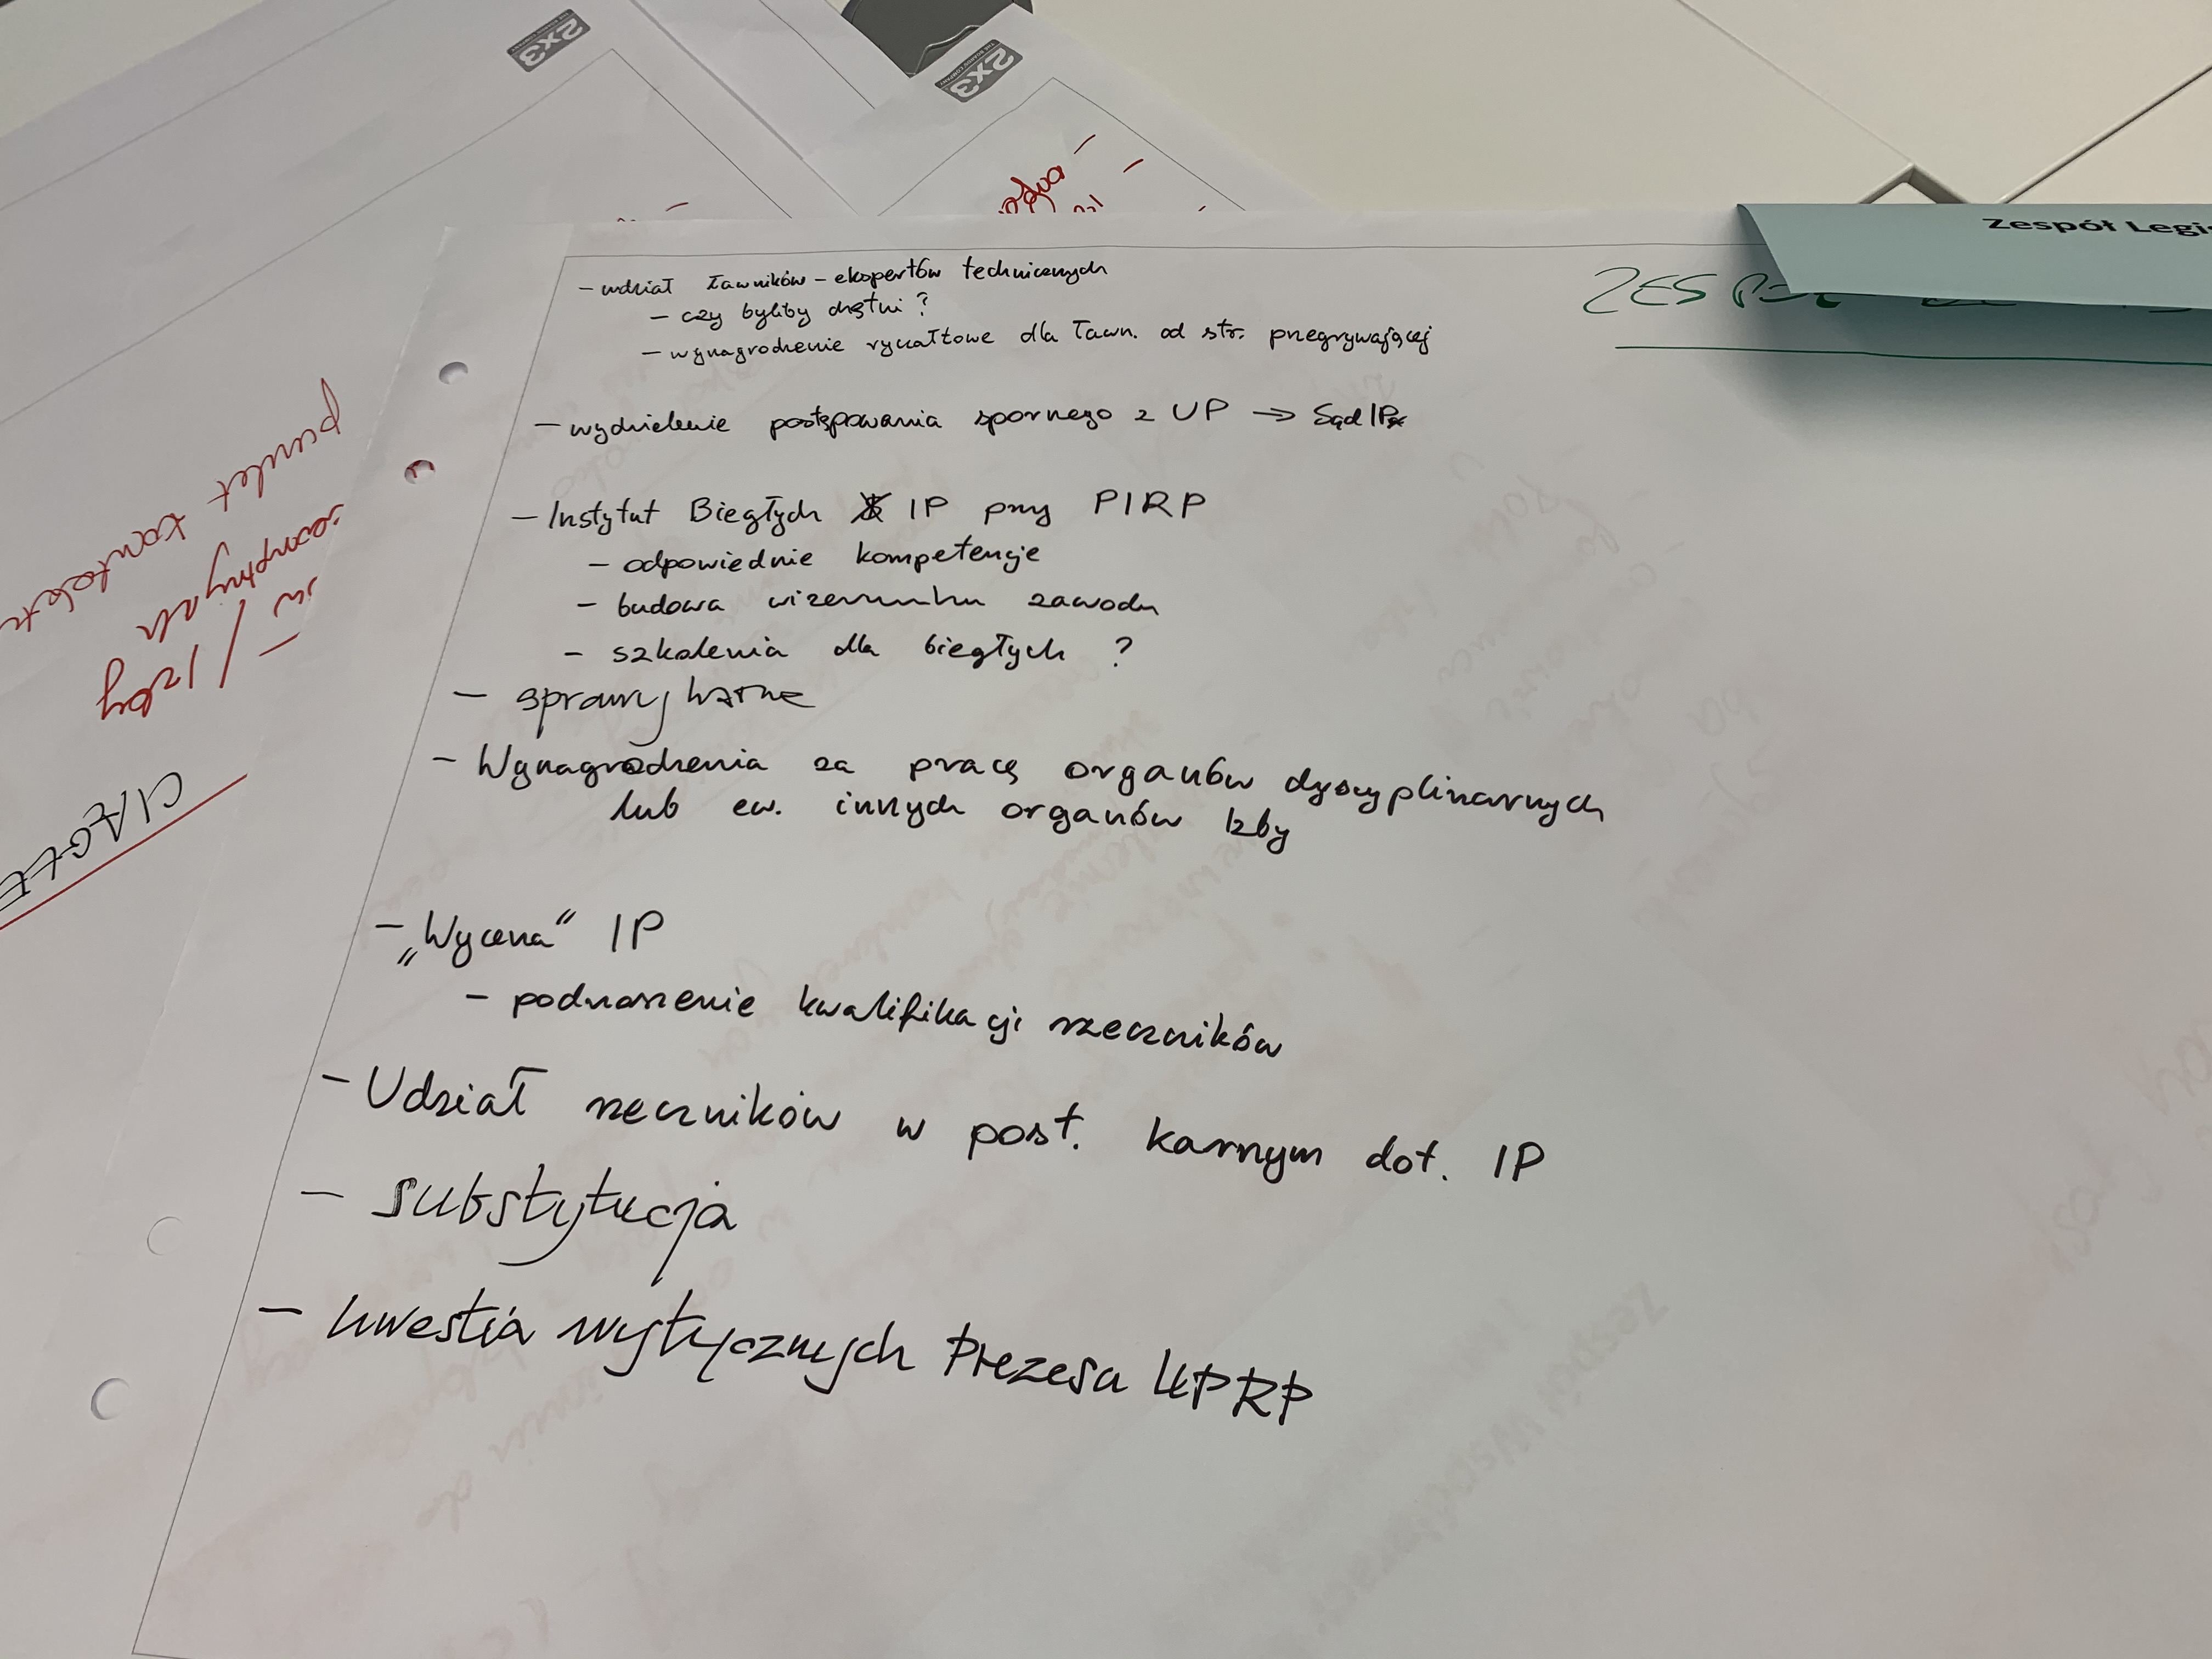 2x3
2x3
Zespół Legi
ZESP
- udział ławników - ekspertów technicznych
- czy byliby chętni?
- wynagrodzenie ryczałtowe dla ławn. od str. przegrywającej
- wydzielenie postępowania spornego z UP → Sąd IP
- Instytut Biegłych IP przy PIRP
- odpowiednie kompetencje
- budowa wizerunku zawodu
- szkolenia dla biegłych ?
- sprawy
- Wynagrodzenia za pracę organów dyscyplinarnych
lub ew. innych organów Izby
- „Wycena" IP
- podnoszenie kwalifikacji rzeczników
- Udział rzeczników w post. karnym dot. IP
- substytucja
- kwestia wytycznych Prezesa UPRP
punkt
/ Izby
CIĄGŁE